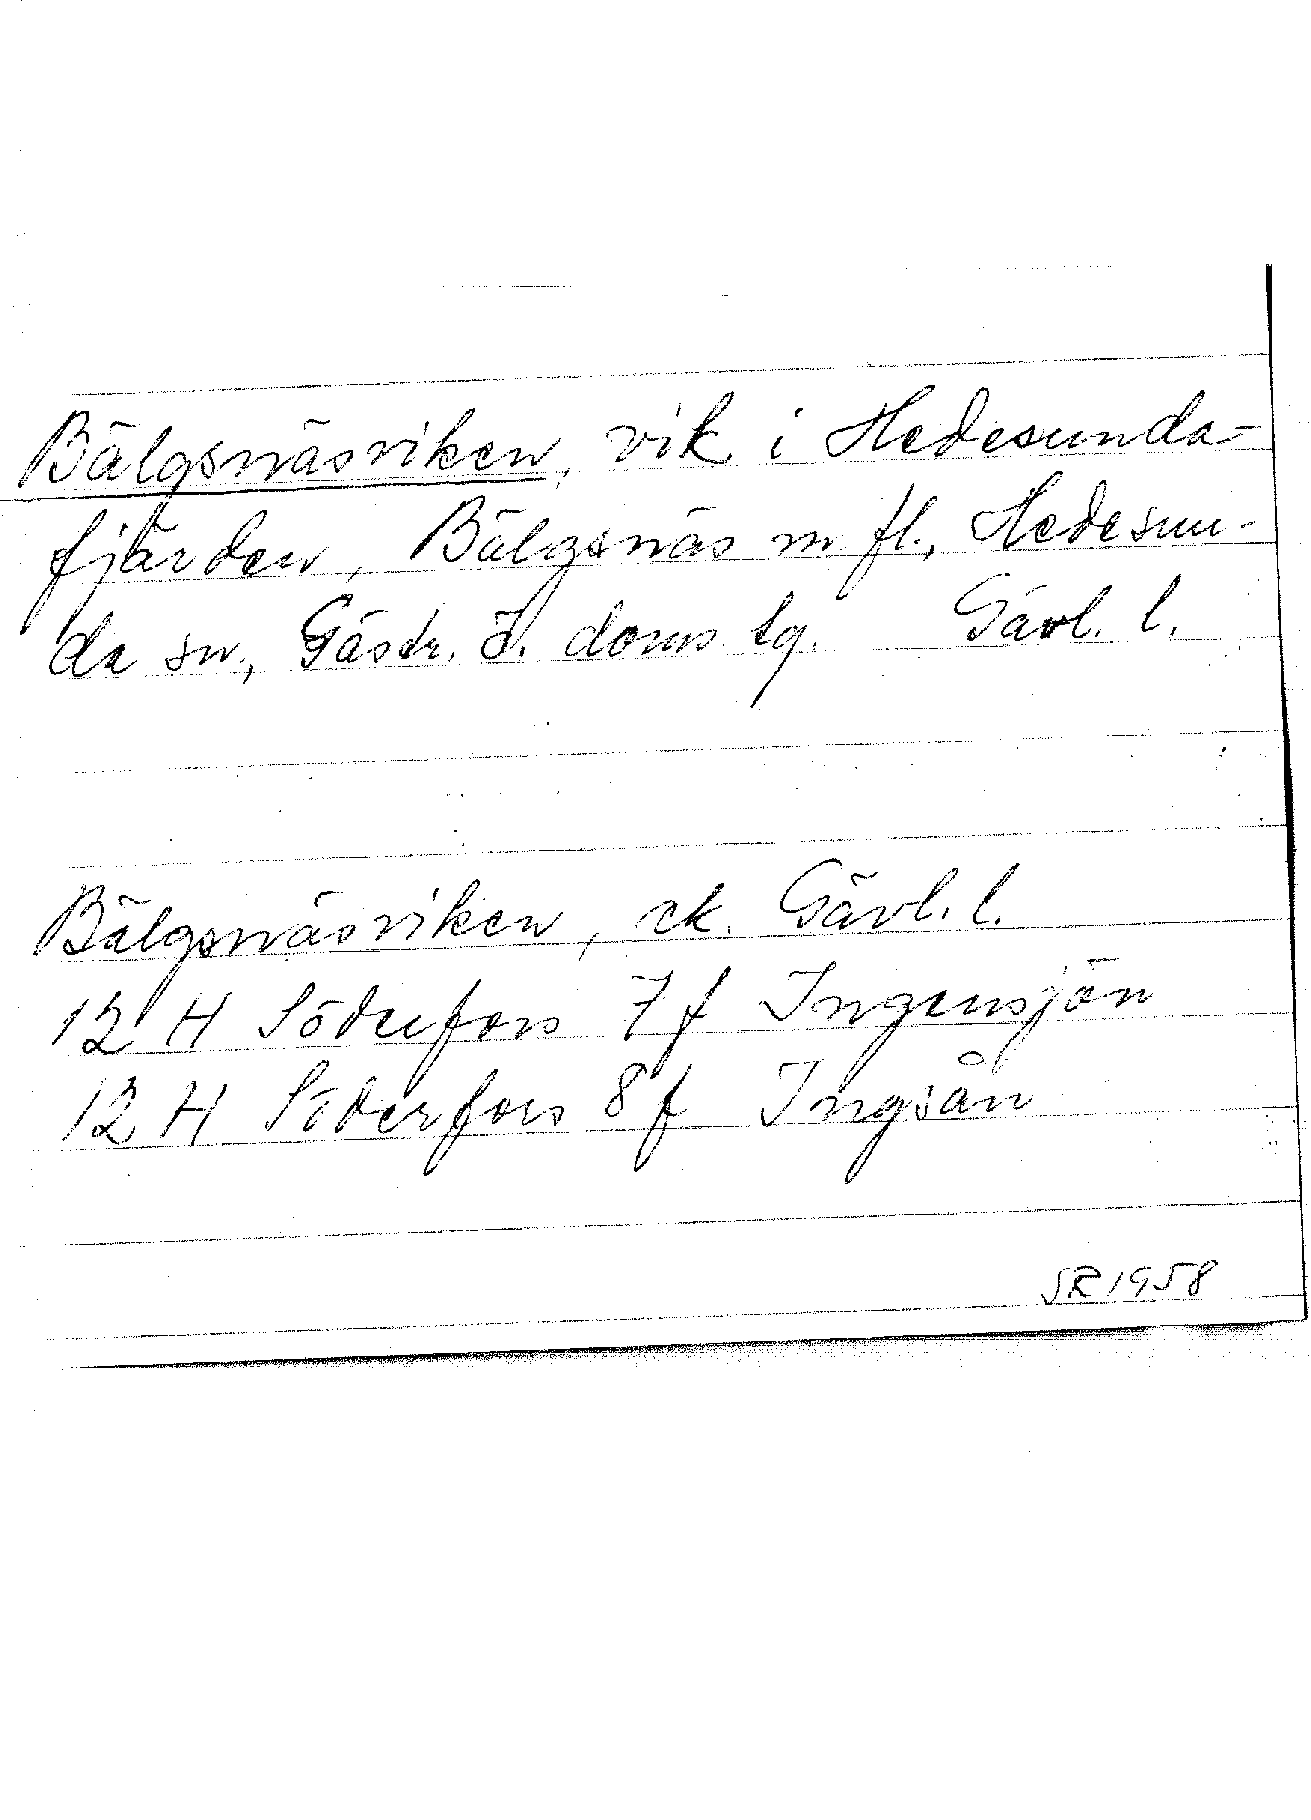 Bälgsnäsviken, vik i Hedesunda-
fjärden, Bälgsnäs m fl., Hedesun-
da sn, Gästr. ö. doms.tg. Gävl. l.
Bälgsnäsviken, ek. Gävl. l.
12 H Söderfors 7f Ingensjön
12 H Söderfors 8f Ingsån
SR 1958